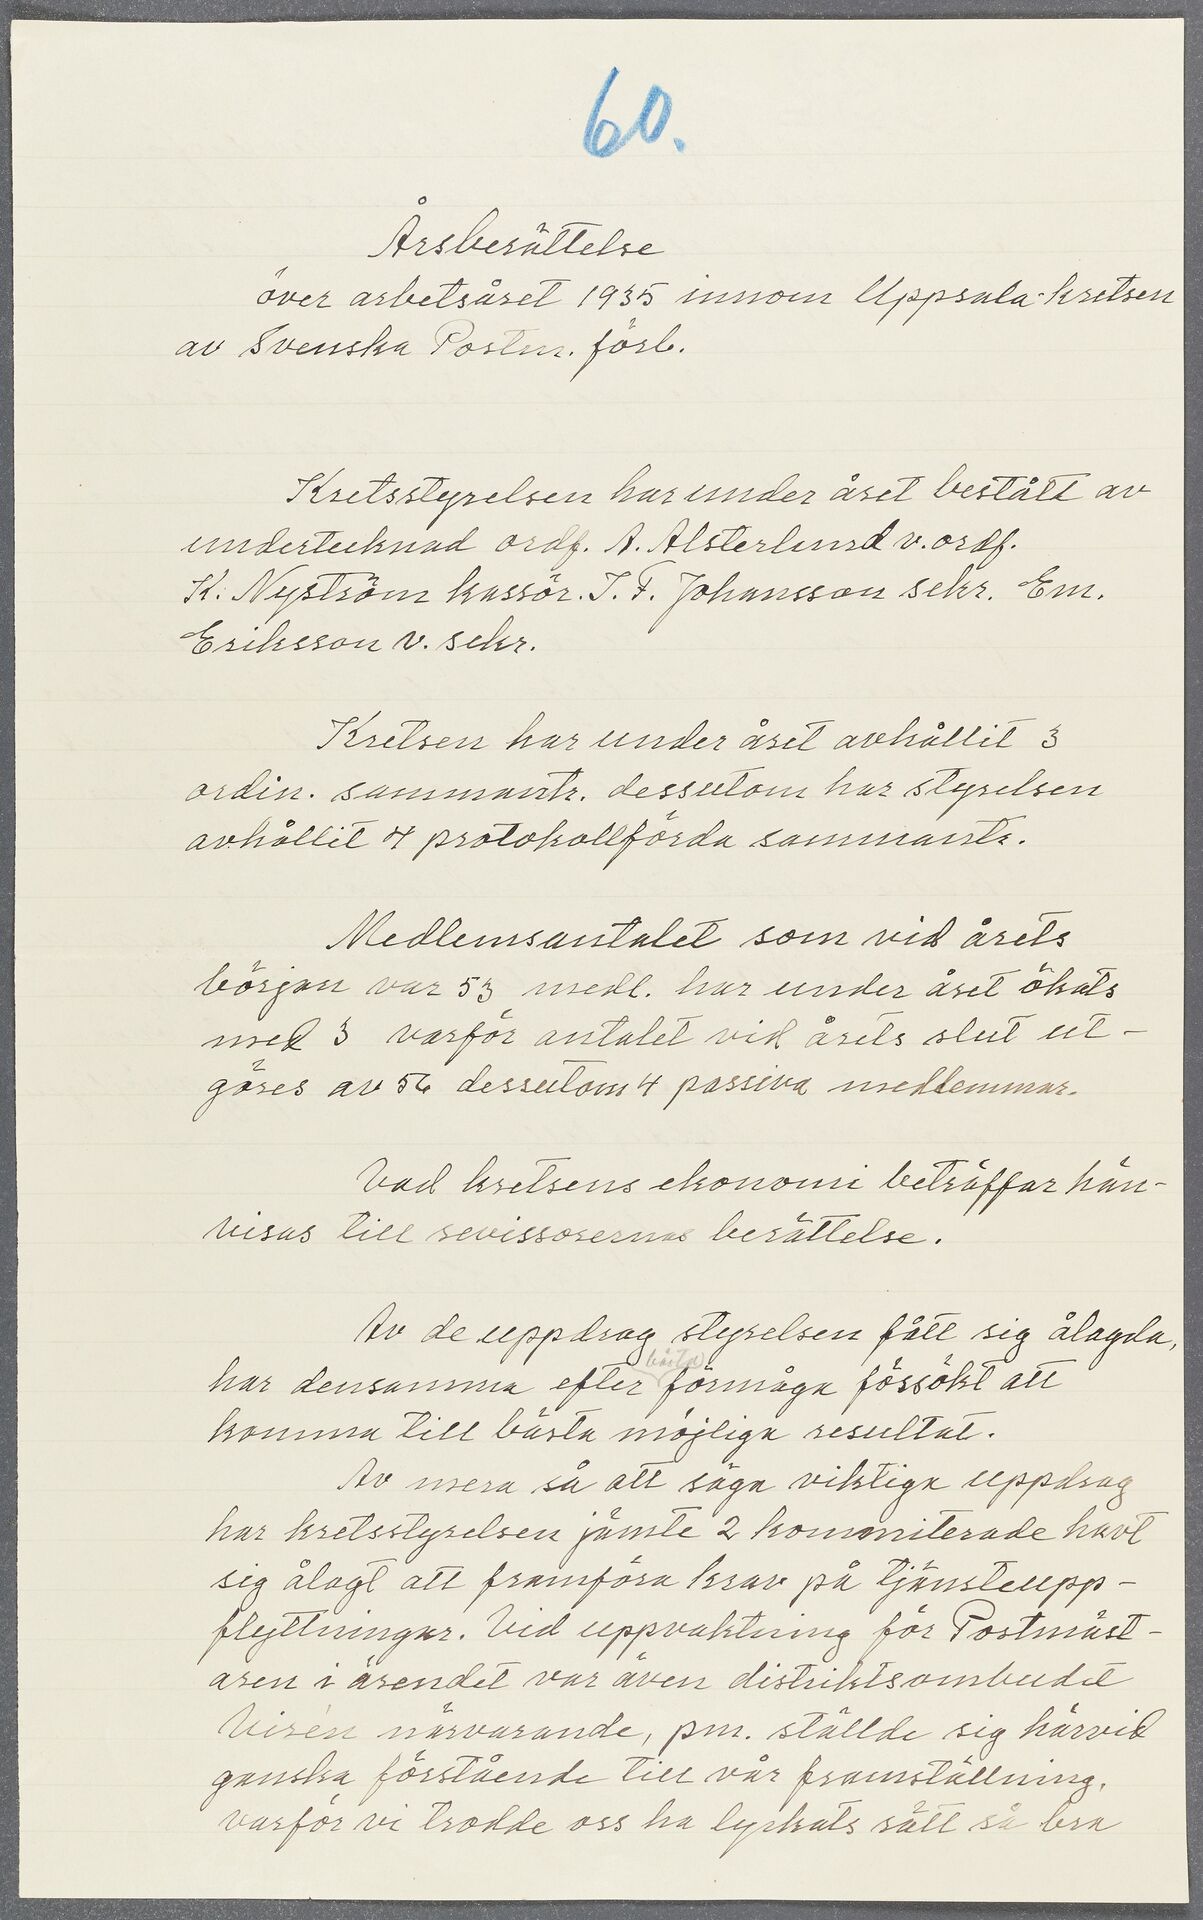 60.
Årsberättelse
över arbetsåret 1935 innom Uppsala-kretsen
av Svenska Postm. förb.
Kretsstyrelsen har under året bestått av
undertecknad ordf. A. Alsterlund v. ordf.
K. Nyström kassör. J. F. Johansson sekr. Em.
Eriksson v. sekr.
Kretsen har under året avhållit 3
ordin. sammantr. dessutom har styrelsen
avhållit 4 protokollförda sammantr.
Medlemsantalet som vid årets
början var 53 medl. har under året ökats
med 3 varför antalet vid årets slut ut-
göres av 56 dessutom 4 passiva medlemmar.
Vad kretsens ekonomi beträffar hän-
visas till revissorernas berättelse.
Av de uppdrag styrelsen fått sig ålagda,
bästa
har densamma efter förmåga försökt att
komma till bästa möjliga resultat.
Av mera så att säga viktiga uppdrag
har kretsstyrelsen jämte 2 kommiterade havt
sig ålagt att framföra krav på tjänsteupp-
flyttningar. Vid uppvaktning för Postmäst-
aren i ärendet var även distriktsombudet
Virén närvarande, pm. ställde sig härvid
ganska förstående till vår framställning,
varför vi trodde oss ha lyckats rätt så bra